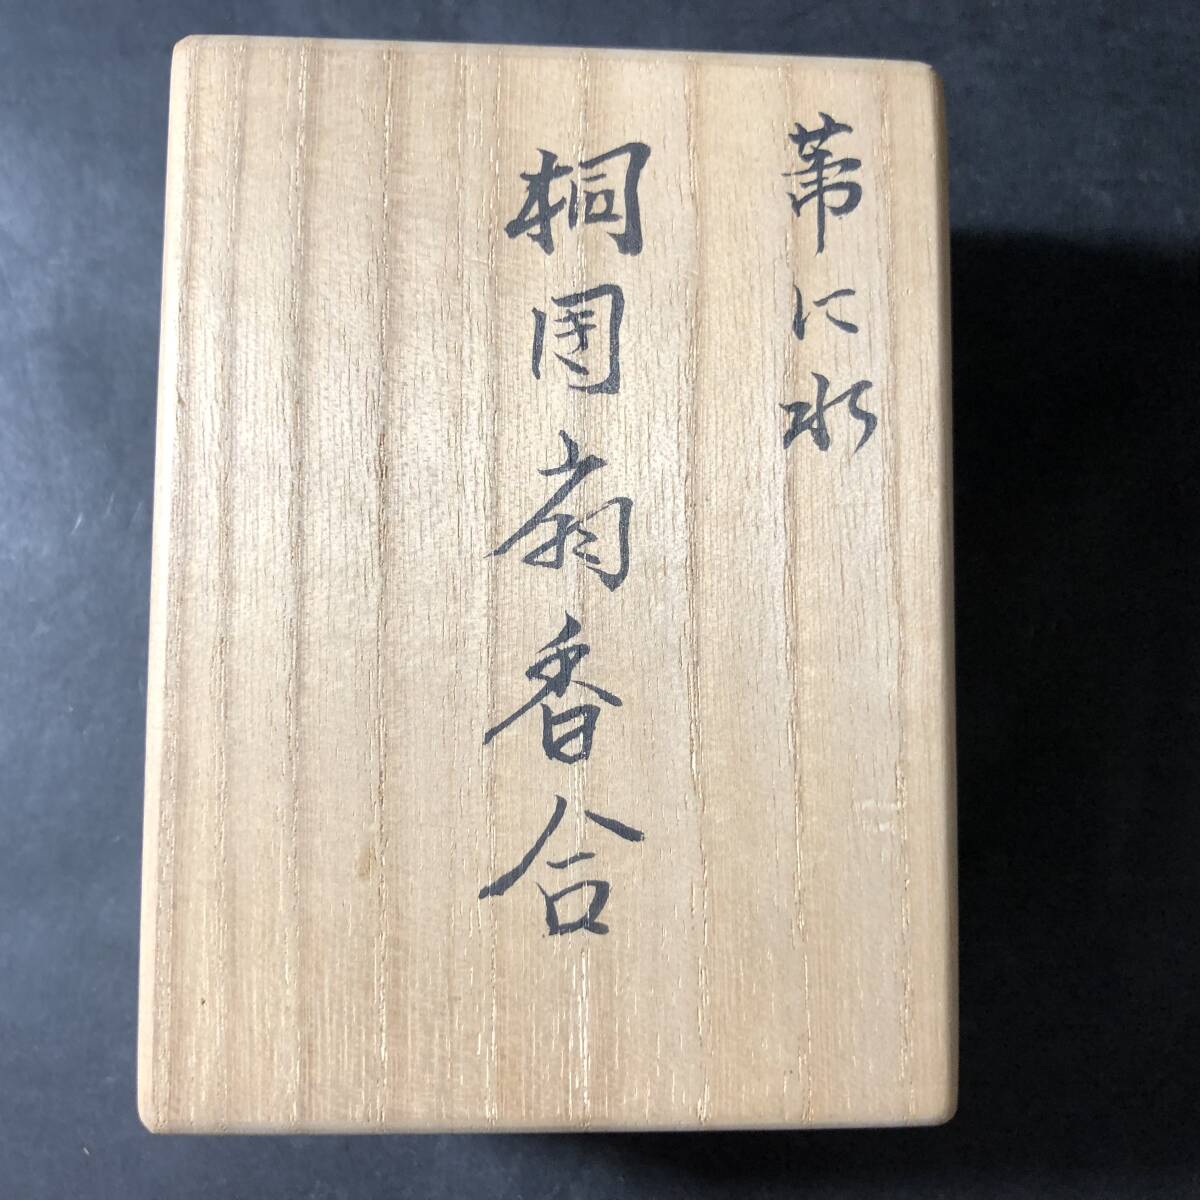 葦に水
桐団扇香合